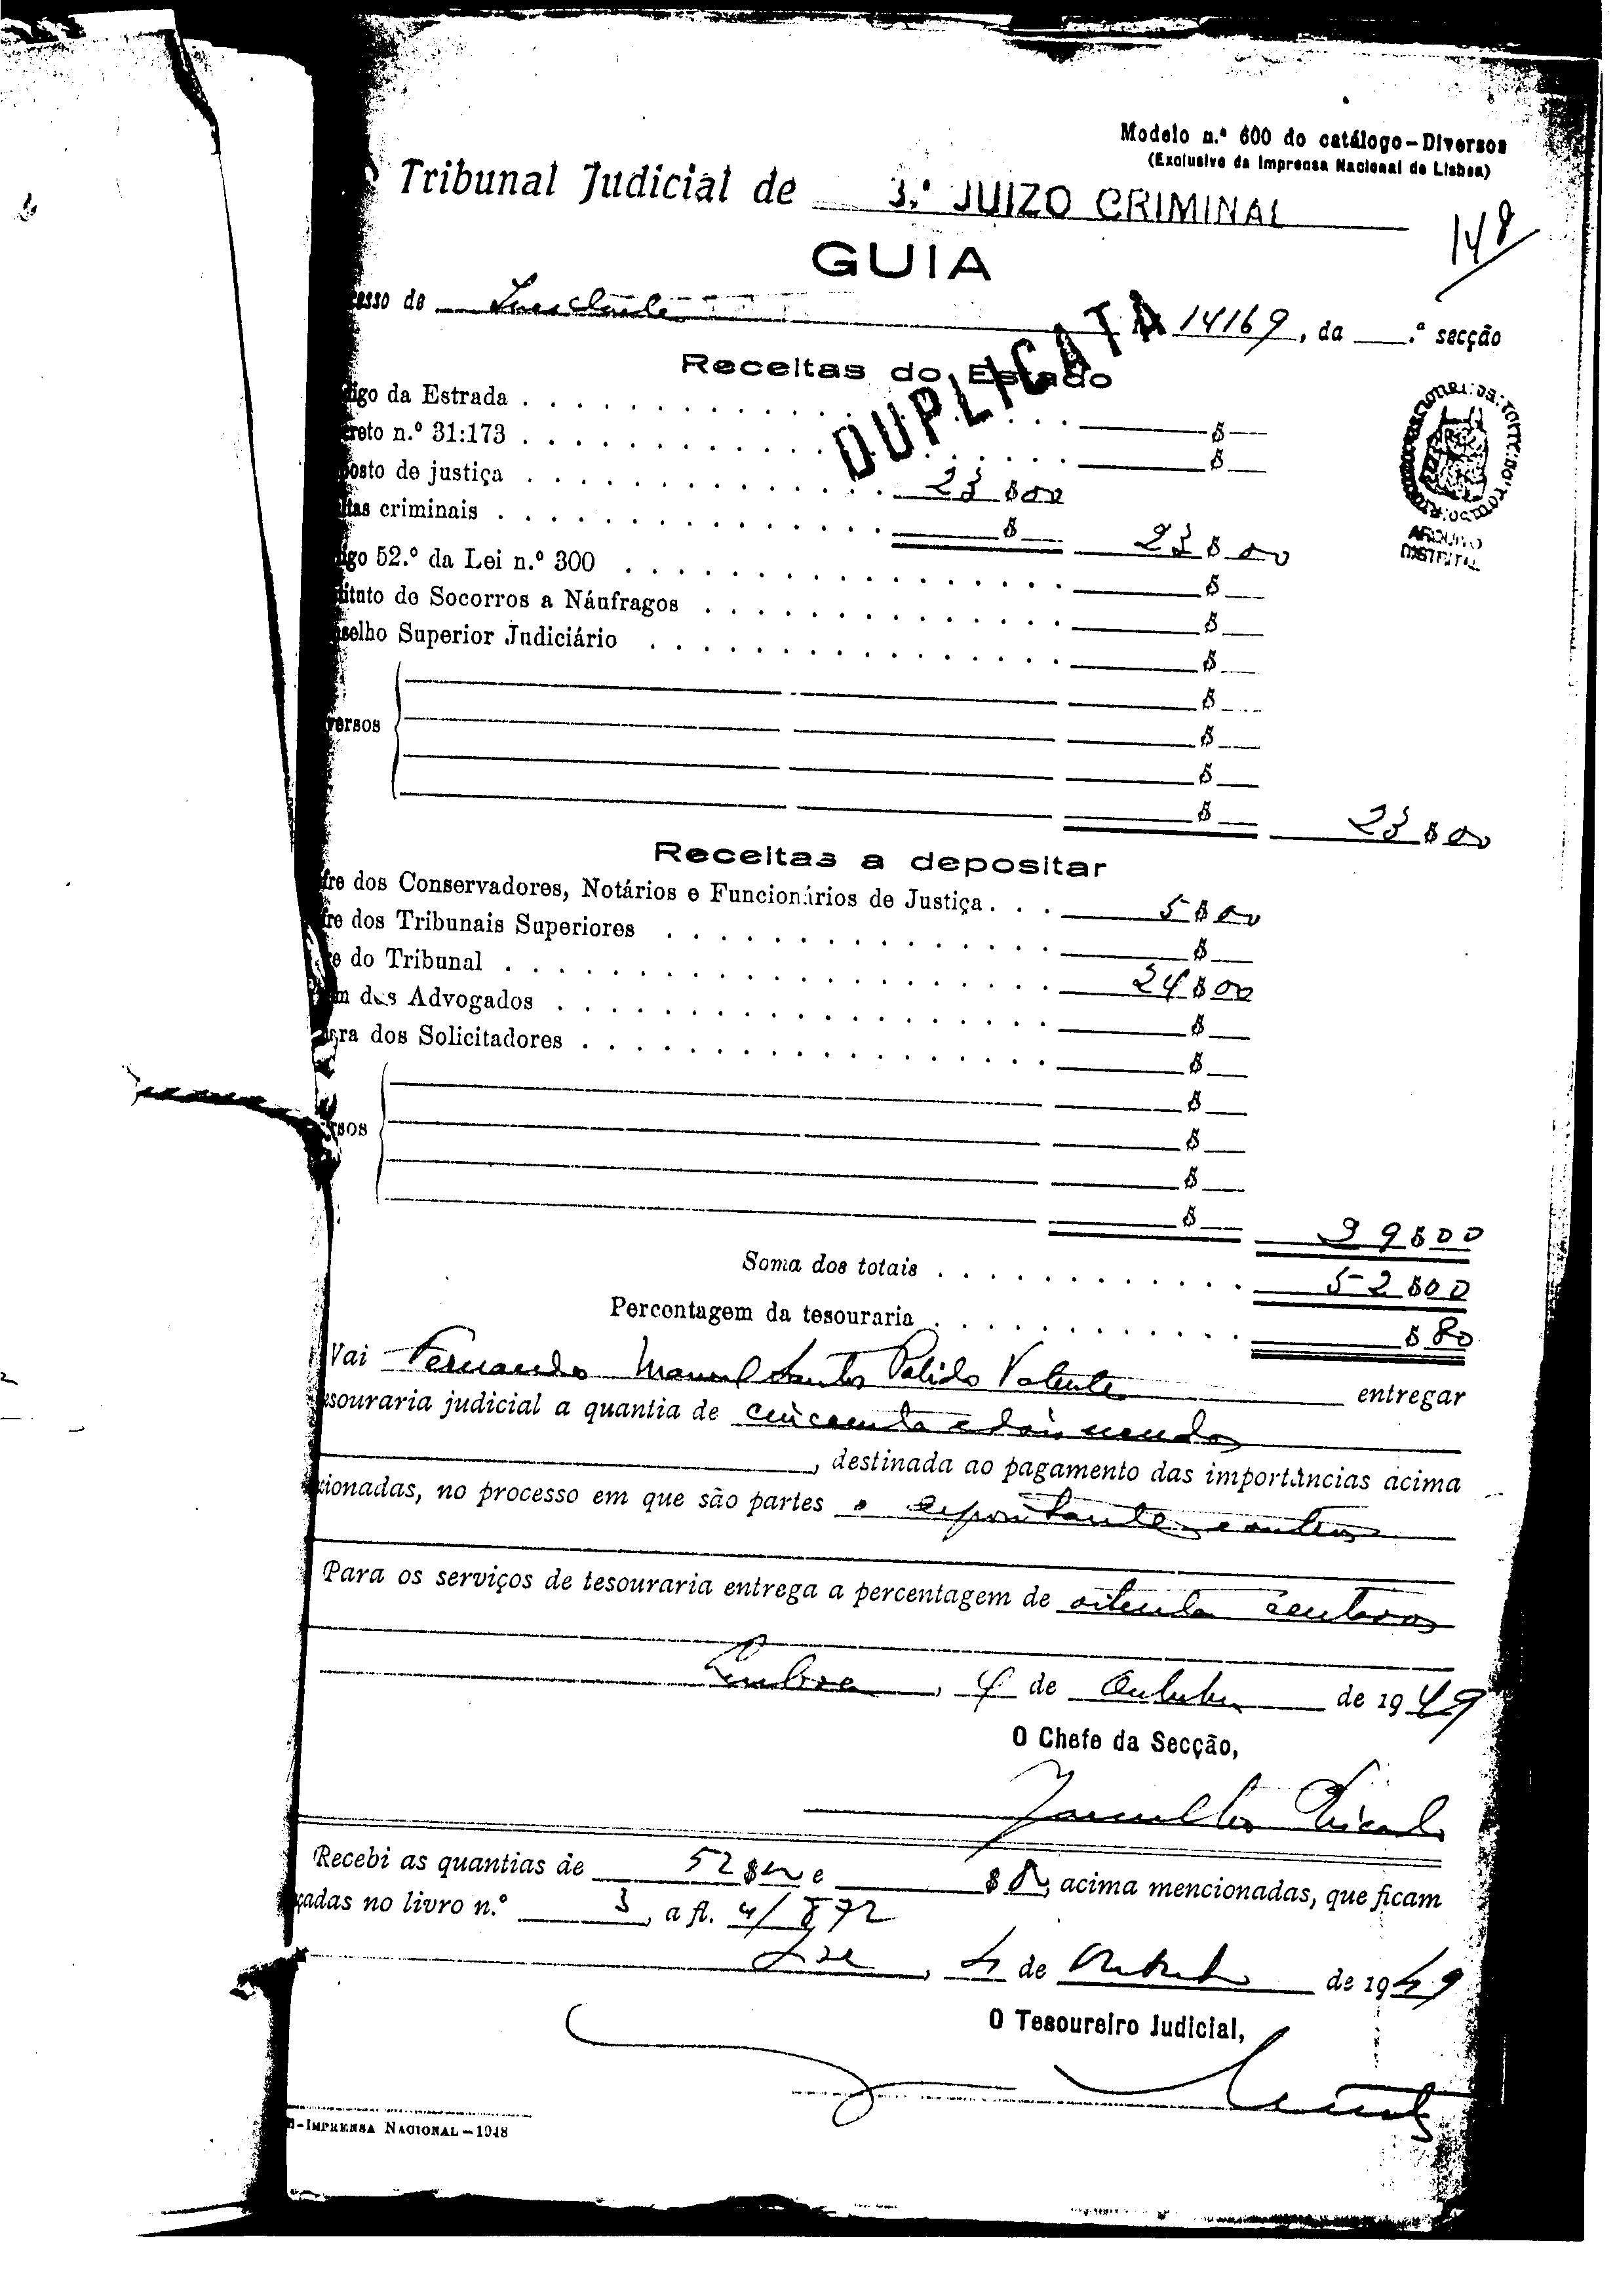 Modelo n.º 600 do catálogo-Diversos
(Exclusivo da Imprensa Nacional de Lisboa)
Tribunal Judicial de 3.º JUIZO CRIMINAL
148
GUIA
esso de 14169, da .ª secção
DUPLICATA
Receitas do Estado
igo da Estrada $
reto n.º 31:173 $
posto de justiça 23$00
ltas criminais $ 23$00
igo 52.º da Lei n.º 300 $
tituto de Socorros a Náufragos $
selho Superior Judiciário $
$
versos $
$
$ 23$00
ARQUIVO
DISTRITAL
Receitas a depositar
fre dos Conservadores, Notários e Funcionários de Justiça 5$00
fre dos Tribunais Superiores $
e do Tribunal 24$00
m dos Advogados $
ara dos Solicitadores $
$
rsos $
$
$ 39$00
Soma dos totais 52$00
Percentagem da tesouraria $80
Vai Fernando Manuel Santos Valente entregar
esouraria judicial a quantia de cincoenta e dois escudos
, destinada ao pagamento das importâncias acima
cionadas, no processo em que são partes o e outros
Para os serviços de tesouraria entrega a percentagem de oitenta centavos
Lisboa, 4 de Outubro de 1949
O Chefe da Secção,
Recebi as quantias de 52$00 e $80, acima mencionadas, que ficam
çadas no livro n.º 3, a fl. 4/872
Lxa, 4 de Outubro de 1949
O Tesoureiro Judicial,
-IMPRENSA NACIONAL-1948